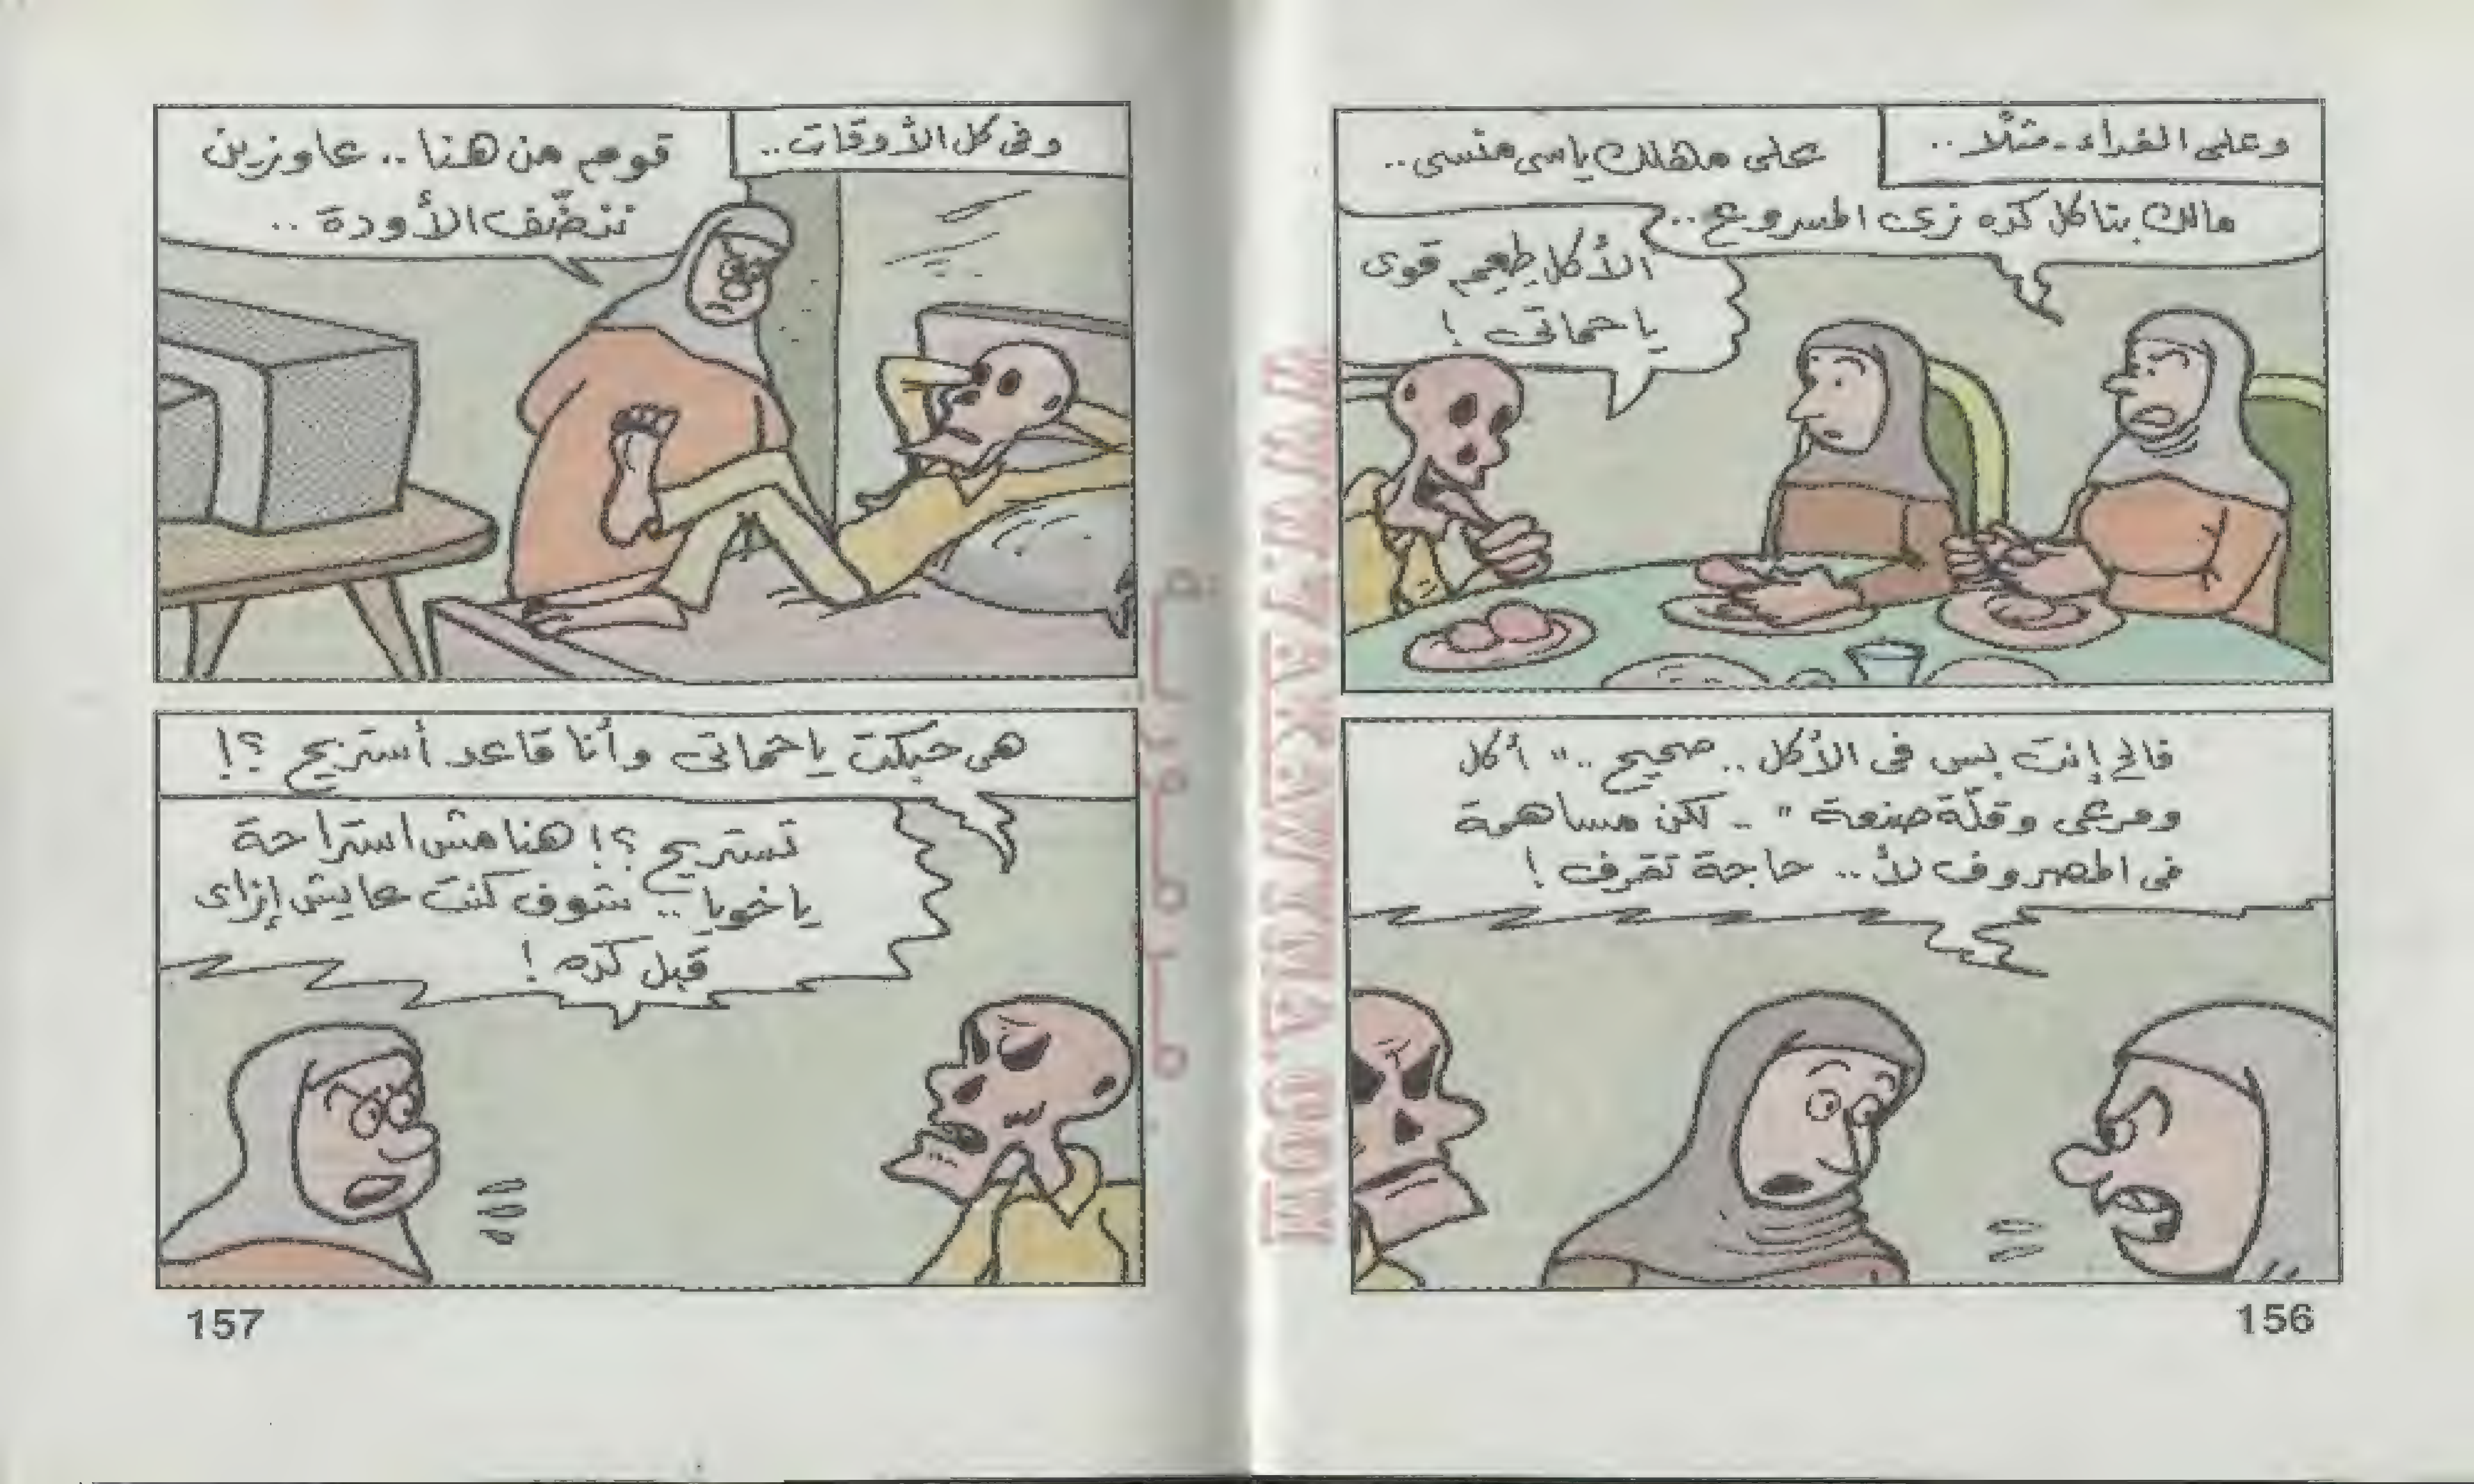 وعلى الغداء - مثلًا ..
على مهلك ياسى منسى ..
مالك بتاكل كده زى المسروع ..
الأكل طعم قوى
ياحماتى !
فالح إنت بس فى الأكل .. صحيح .. " أكل
ومرعى وقلّة صنعة " .. لكن مساهمة
فى المصروف لأ .. حاجة تقرف !
156
وفى كل الأوقات ..
قوم من هنا .. عاوزين
ننضّف الأودة ..
هى حبكت ياحماتى وأنا قاعد أستريح ؟!
تستريح ؟! هنا مش استراحة
ياخويا .. شوف كنت عايش إزاى
قبل كده !
157